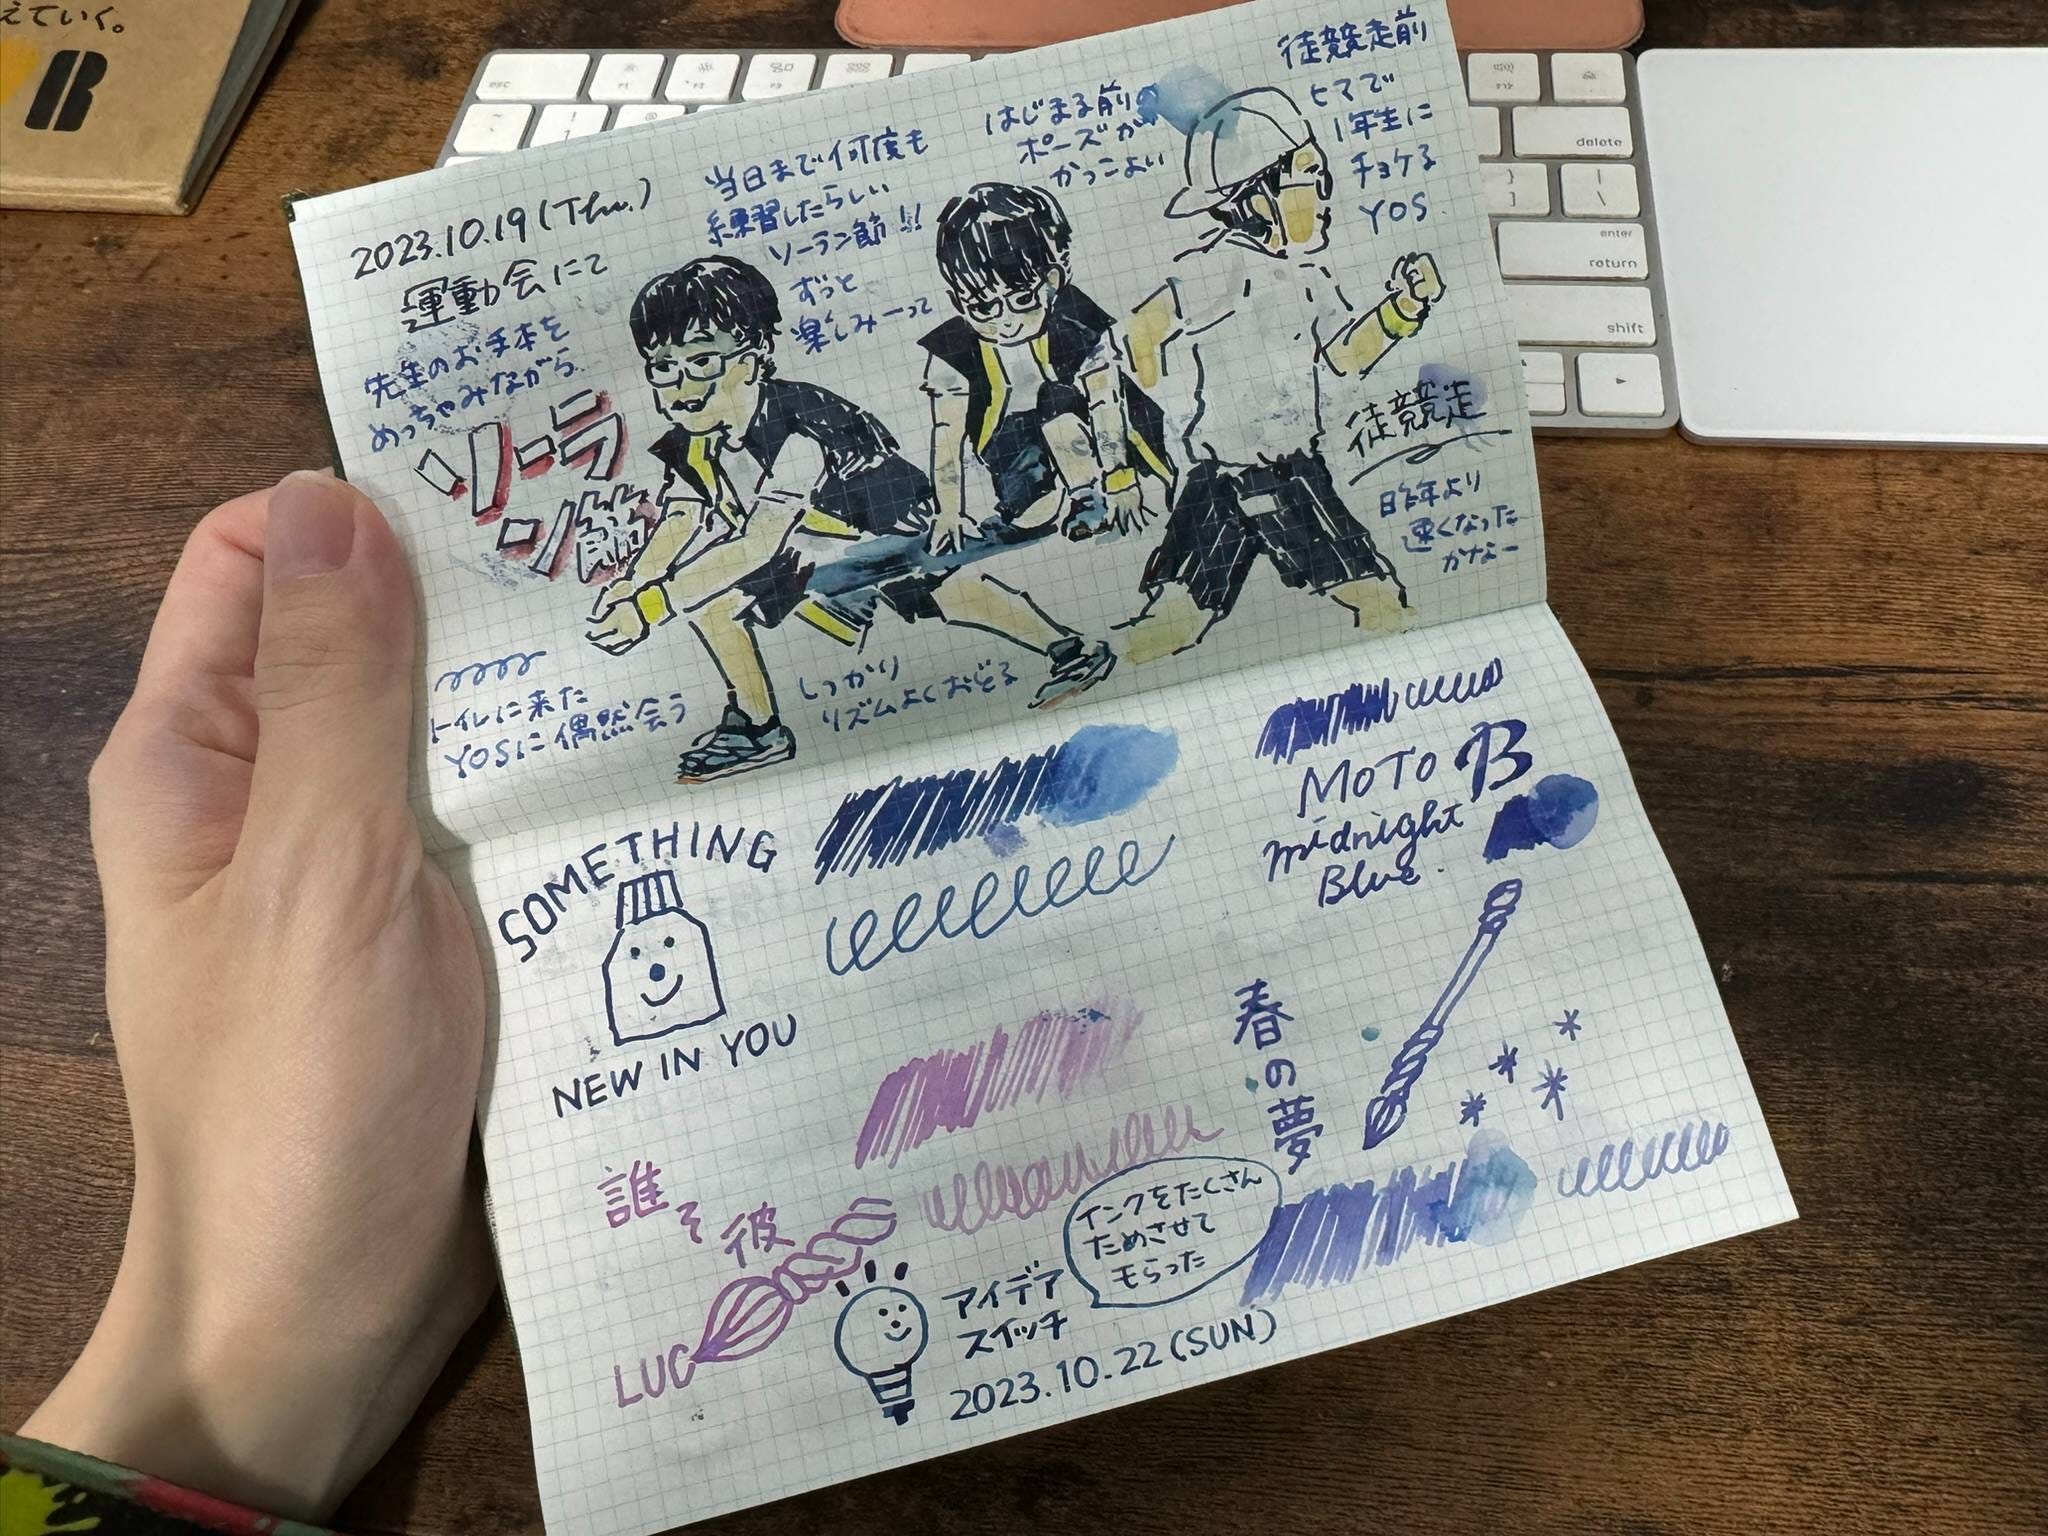 えていく。
B
esc
F1
F2
delete
enter
return
shift
2023.10.19(Thu.)
運動会にて
先生のお手本を
めっちゃみながら
ソーラ
ン節
当日まで何度も
練習したらしい
ソーラン節!!
ずっと
楽しみーって
はじまる前の
ポーズが
かっこよい
徒競走前
ヒマで
1年生に
チョケる
YOS.
徒競走
昨年より
速くなった
かなー
トイレに来た
YOSに偶然会う
しっかり
リズムよくおどる
SOMETHING
NEW IN YOU
MOTO B
midnight
Blue.
春の夢
誰そ彼
LUC
アイデア
スイッチ
インクをたくさん
ためさせて
もらった
2023.10.22(SUN)